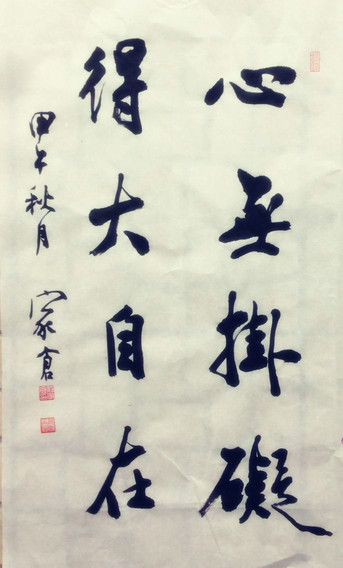 心無掛礙
得大自在
甲午秋月
家倉